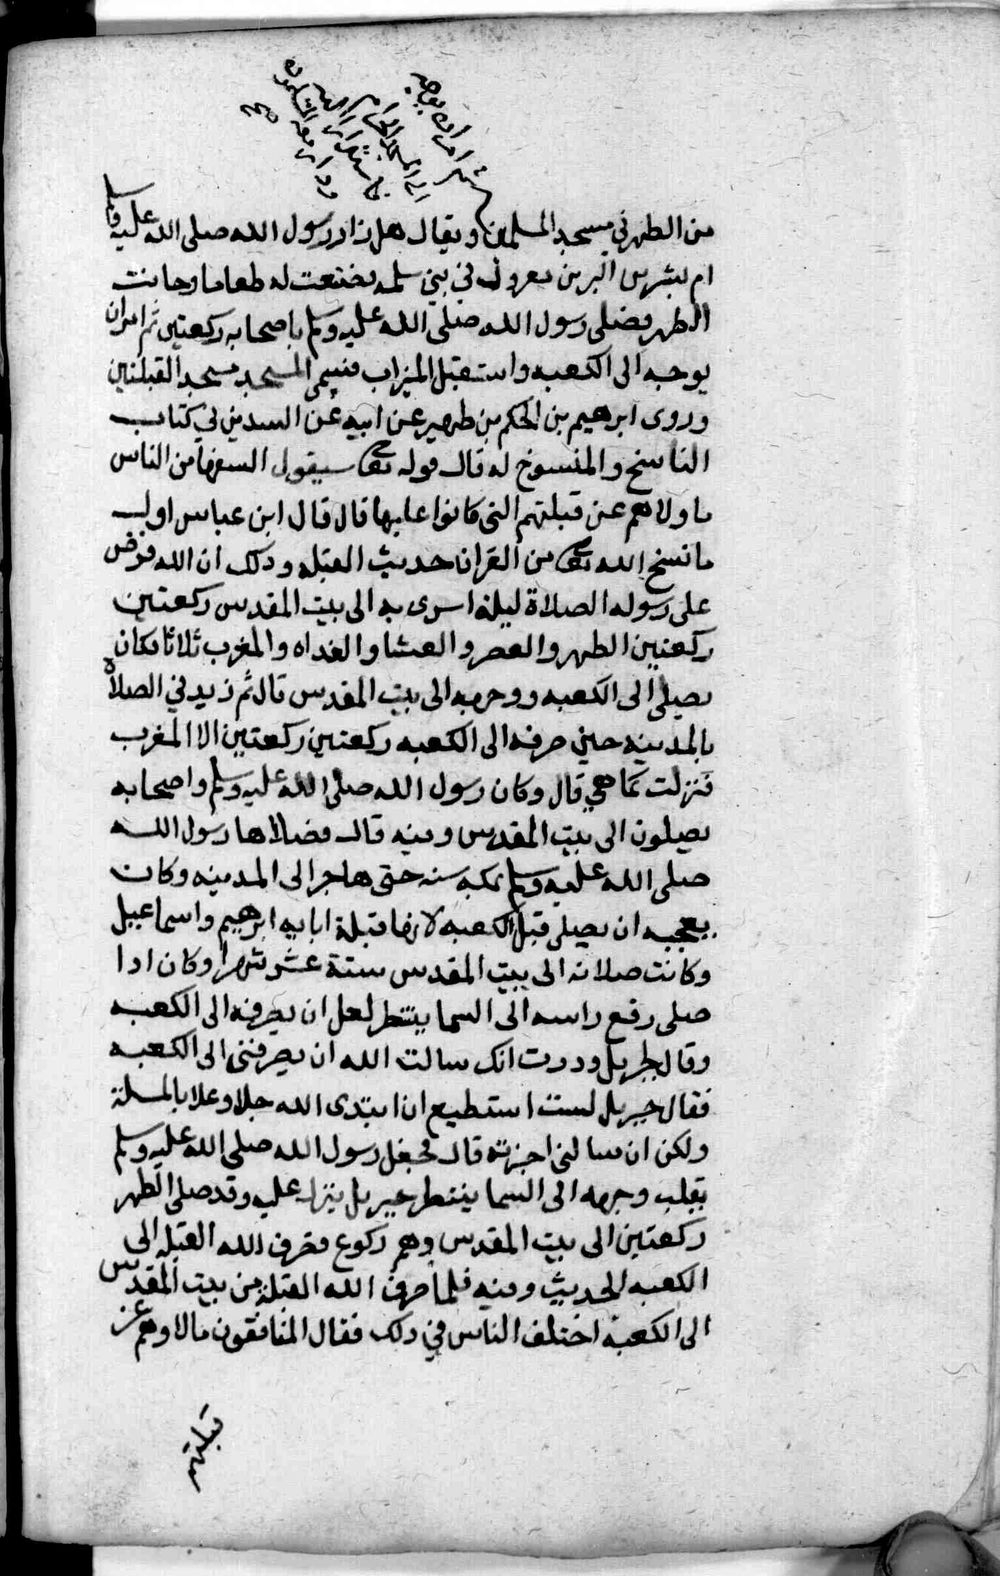 ثم امر ان يوجه
الى المسجد الحرام
فاستدار اليه
ودار معه المسلمون
صح
من الظهر في مسجد المسلمين ويقال هل زار رسول الله صلى الله عليه وسلم
ام بشر بن البر بن معرور في بني سلمه فصنعت له طعاما وحانت
الظهر فصلى رسول الله صلى الله عليه وسلم باصحابه ركعتين ثم امر ان
يوجه الى الكعبه واستقبل الميزاب فسمى المسجد مسجد القبلتين
وروى ابرهيم بن الحكم بن ظهير عن ابيه عن السدي في كتاب
الناسخ والمنسوخ له قال قوله تعالى سيقول السفها من الناس
ما ولاهم عن قبلتهم التي كانوا عليها قال قال ابن عباس اول
ما نسخ الله تعالى من القران حديث القبله وذلك ان الله فرض
على رسوله الصلاة ليلة اسرى به الى بيت المقدس ركعتين
ركعتين الظهر والعصر والعشا والغداه والمغرب ثلاثا فكان
يصلي الى الكعبه ووجهه الى بيت المقدس قال ثم زيد في الصلاة
بالمدينه حين صرفه الى الكعبه ركعتين ركعتين الا المغرب
فتركت كما هي قال وكان رسول الله صلى الله عليه وسلم واصحابه
يصلون الى بيت المقدس وفيه قال فصلاها رسول الله
صلى الله عليه وسلم بمكه سنه حتى هاجر الى المدينه وكان
يعجبه ان يصلي قبل الكعبه لانها قبلة ابايه ابرهيم واسماعيل
وكانت صلاته الى بيت المقدس ستة عشر شهرا وكان اذا
صلى رفع راسه الى السما ينتظر لعل ان يصرفه الى الكعبه
وقال لجبريل وددت انك سالت الله ان يصرفني الى الكعبه
فقال جبريل لست استطيع ان ابتدى الله جلا وعلا بالمسلة
ولكن ان سالني اخبرته قال فجعل رسول الله صلى الله عليه وسلم
يقلب وجهه الى السما ينتظر جبريل ينزل عليه وقد صلى الظهر
ركعتين الى بيت المقدس وهم ركوع فصرف الله القبله الى
الكعبه الحديث وفيه فلما صرف الله القبلة من بيت المقدس
الى الكعبة اختلف الناس في ذلك فقال المنافقون ما لاوهم عن
قبلتهم